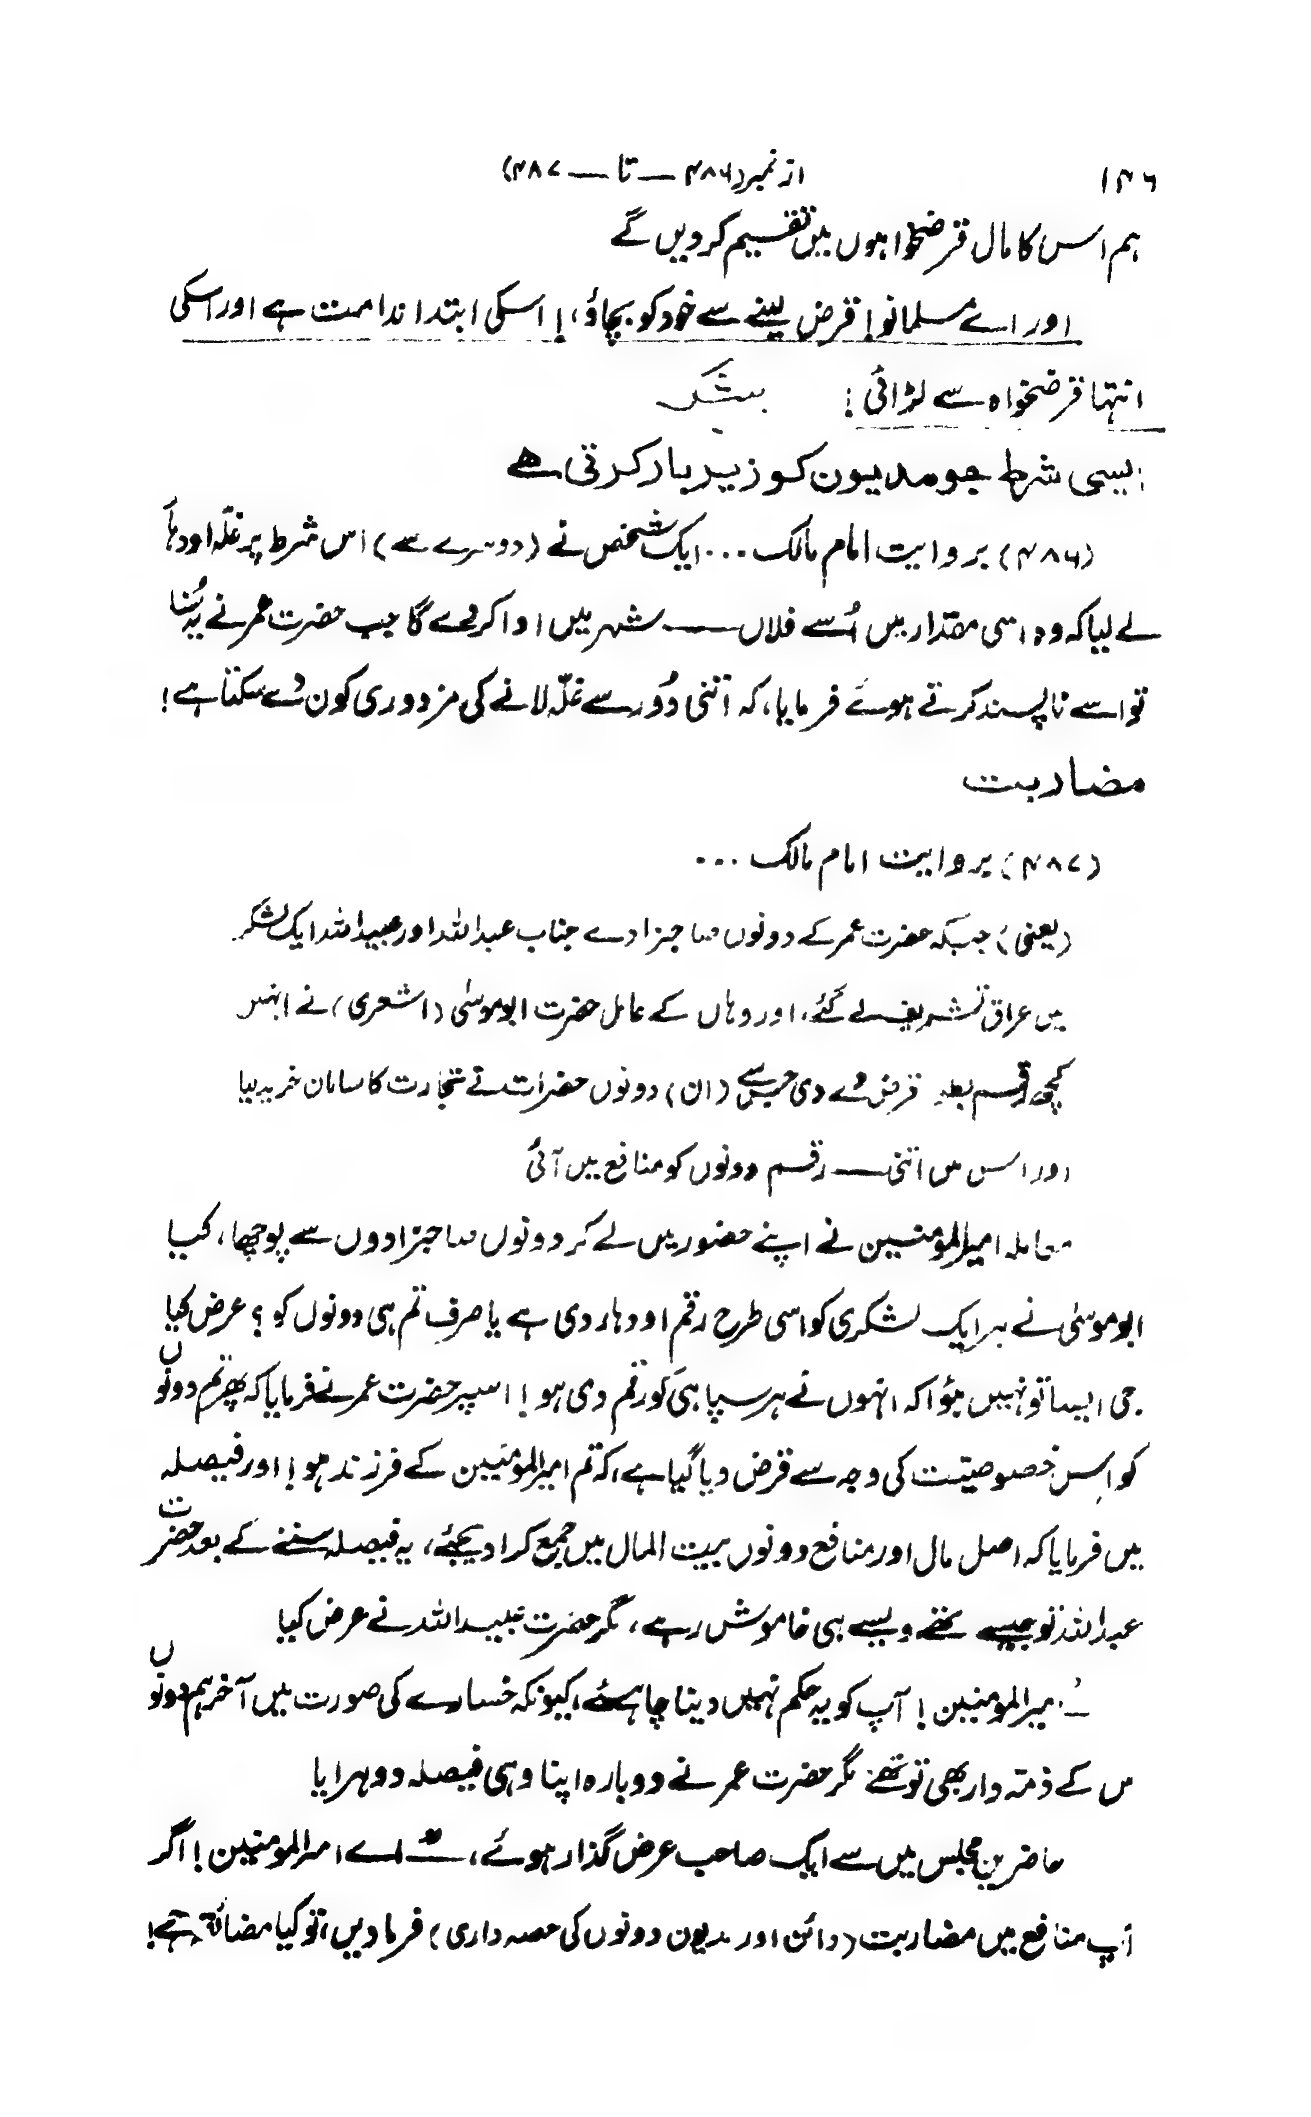 ۱۴۶
از نمبر (۴۸۶ — تا — ۴۸۷)
ہم اس کا مال قرضخواہوں میں تقسیم کر دیں گے
اور اے مسلمانو! قرض لینے سے خود کو بچاؤ،! اسکی ابتدا ندامت ہے اور اسکی
انتہا قرضخواہ سے لڑائی!
ایسی شرط جو مدیون کو زیر بار کرتی ہے
(۴۸۶) بروایت امام مالک ... ایک شخص نے (دوسرے سے) اس شرط پر غلّہ اودہار
لے لیا کہ وہ اسی مقدار میں اُسے فلاں — شہر میں ادا کر دے گا جب حضرت عمر نے یہ سُنا
تو اسے ناپسند کرتے ہوئے فرمایا، کہ اتنی دُور سے غلّہ لانے کی مزدوری کون دے سکتا ہے!
مضاربت
(۴۸۷) بروایت امام مالک ...
(یعنی) جبکہ حضرت عمر کے دونوں صاحبزادے جناب عبداللہ اور عبیداللہ ایک لشکر
میں عراق تشریف لے گئے، اور وہاں کے عامل حضرت ابوموسیٰ (اشعری) نے انہیں
کچھ رقم بطور قرض دے دی جس سے (ان) دونوں حضرات نے تجارت کا سامان خرید لیا
اور اس میں اتنی — رقم دونوں کو منافع میں آئی
معاملہ امیرالمؤمنین نے اپنے حضور میں لے کر دونوں صاحبزادوں سے پوچھا، کیا
ابوموسیٰ نے ہر ایک لشکری کو اسی طرح رقم اودہار دی ہے یا صرف تم ہی دونوں کو؟ عرض کیا
جی ایسا تو نہیں ہؤا کہ انہوں نے ہر سپاہی کو رقم دی ہو! اسپر حضرت عمر نے فرمایا کہ پھر تم دونوں
کو اس خصوصیّت کی وجہ سے قرض دیا گیا ہے، کہ تم امیرالمؤمنین کے فرزند ہو! اور فیصلہ
میں فرمایا کہ اصل مال اور منافع دونوں بیت المال میں جمع کرا دیجئے، یہ فیصلہ سننے کے بعد حضرت
عبداللہ تو جیسے تھے ویسے ہی خاموش رہے، مگر حضرت عبیداللہ نے عرض کیا
میرالمومنین! آپ کو یہ حکم نہیں دینا چاہئے، کیونکہ خسارے کی صورت میں آخر ہم دونوں
س کے ذمّہ دار بھی تو تھے مگر حضرت عمر نے دوبارہ اپنا وہی فیصلہ دوہرایا
حاضرین مجلس میں سے ایک صاحب عرض گذار ہوئے، — اے امیرالمومنین! اگر
آپ منافع میں مضاربت (دائن اور مدیون دونوں کی حصہ داری) فرما دیں، تو کیا مضائقہ ہے!